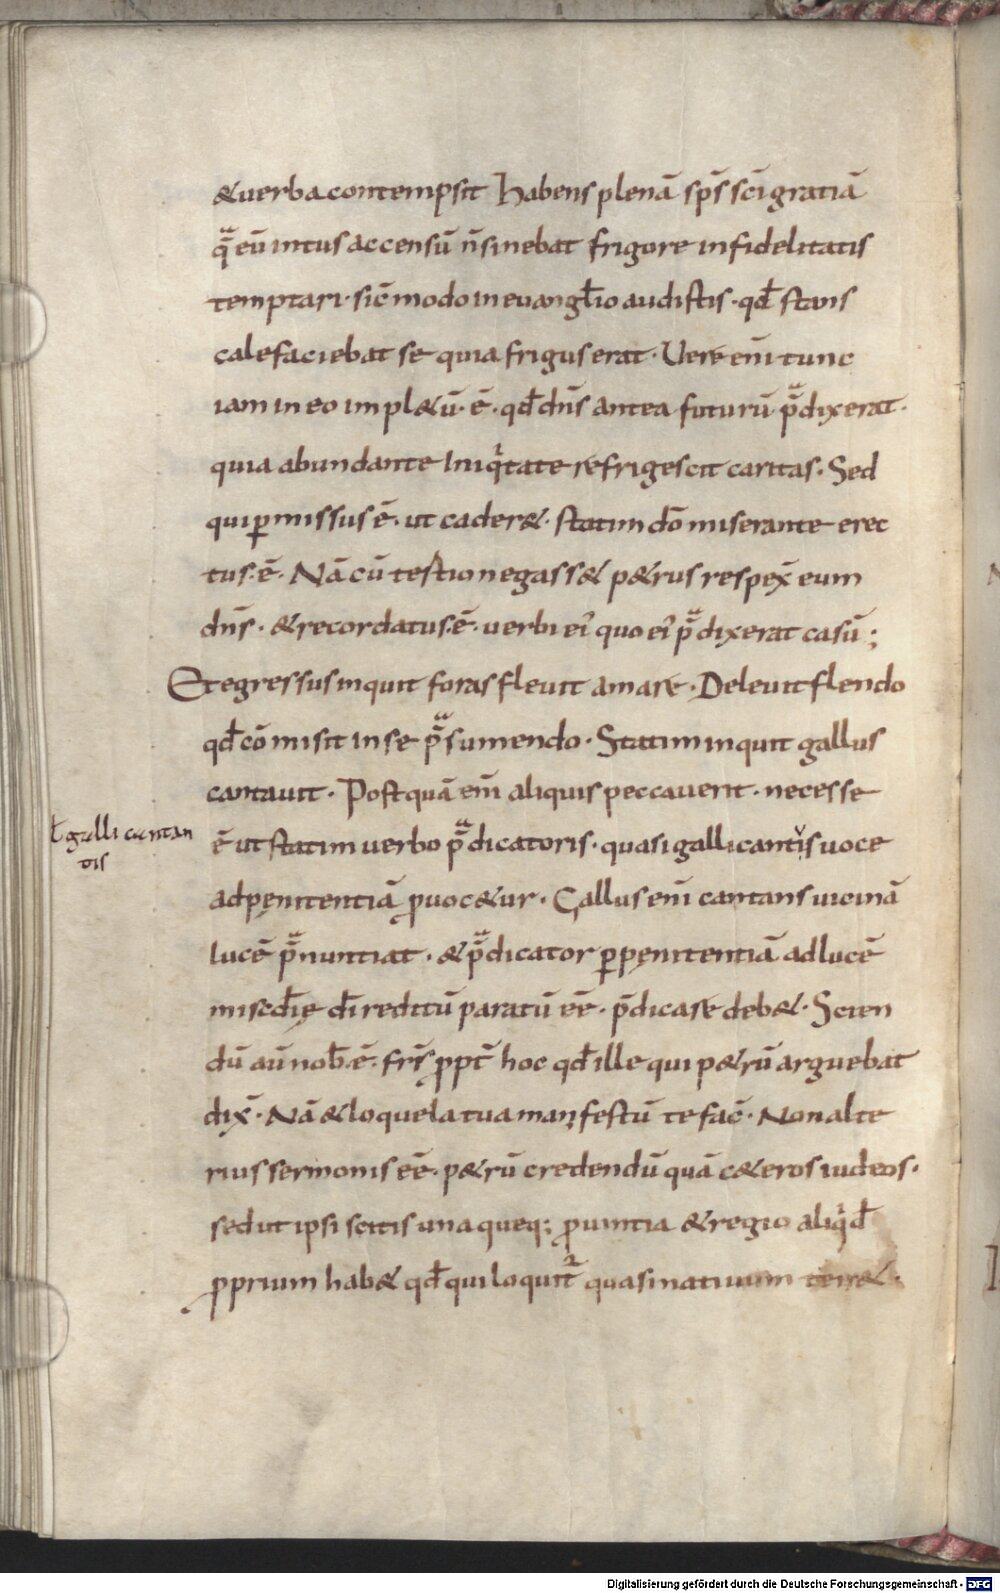 &uerba contempsit Habens plenā sp̄s sc̄i gratiā
q̄ eū intus accensū n̄ sinebat frigore infidelitatis
temptari· sic̄ modo in euangl̄io audistis· qd̄ stans
calefaciebat se quia frigus erat· Uere eni̅ tunc
iam in eo impl&ū· ē· qd̄ dn̄s antea futurū p̄dixerat·
quia abundante Iniqͥtate refrigescit caritas· Sed
qui ꝑmissus ē· ut cader&· statim dō miserante erec
tus· ē· Nā cū testio negass& p&rus respex̄ eum
dn̄s· & recordatus· ē· uerbi eiꝰ quo eiꝰ p̄dixerat casū;
Et egressus inquit foras fleuit amare· Deleuit flendo
qd̄ cōmisit in se p̄sumendo· Statim inquit gallus
cantauit· Postquā eni̅ aliquis peccauerit· necesse
ł galli cantan
tis
ē ut statim uerbo p̄dicatoris· quasi galli cantis uoce
ad pęnitentiā ꝓuoc&ur· Gallus eni̅ cantans uicinā
lucē p̄nuntiat· & p̄dicator ꝑ pęnitentiā ad lucē
miscd̄ię dī reditū paratū eē· p̄dicare deb&· Scien
dū aū nob̄· ē· fr̄s ꝓpt̄ hoc qd̄ ille qui p&rū arguebat
dix̄· Nā & loquela tua manifestū te fac̄· Non alte
rius sermonis eē· p&rū credendū quā c&eros iudeos·
sed ut ipsi scitis una queq; ꝓuintia & regio aliqͥd̄
ꝓprium hab& qd̄ qui loquit᷑ quasi natiuum terr&·
Digitalisierung gefördert durch die Deutsche Forschungsgemeinschaft - DFG